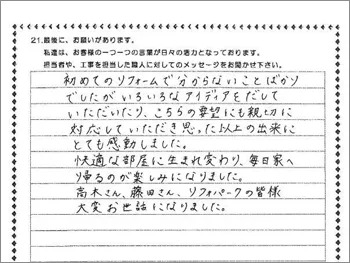 21.最後に、お願いがあります。
私達は、お客様の一つ一つの言葉が日々の活力となっております。
担当者や、工事を担当した職人に対してのメッセージをお聞かせ下さい。
初めてのリフォームで分からないことばかり
でしたがいろいろなアイディアをだして
いただいたり、こちらの要望にも親切に
対応していただき思った以上の出来に
とても感動しました。
快適な部屋に生まれ変わり、毎日家へ
帰るのが楽しみになりました。
高木さん、藤田さん、リフォパークの皆様
大変お世話になりました。